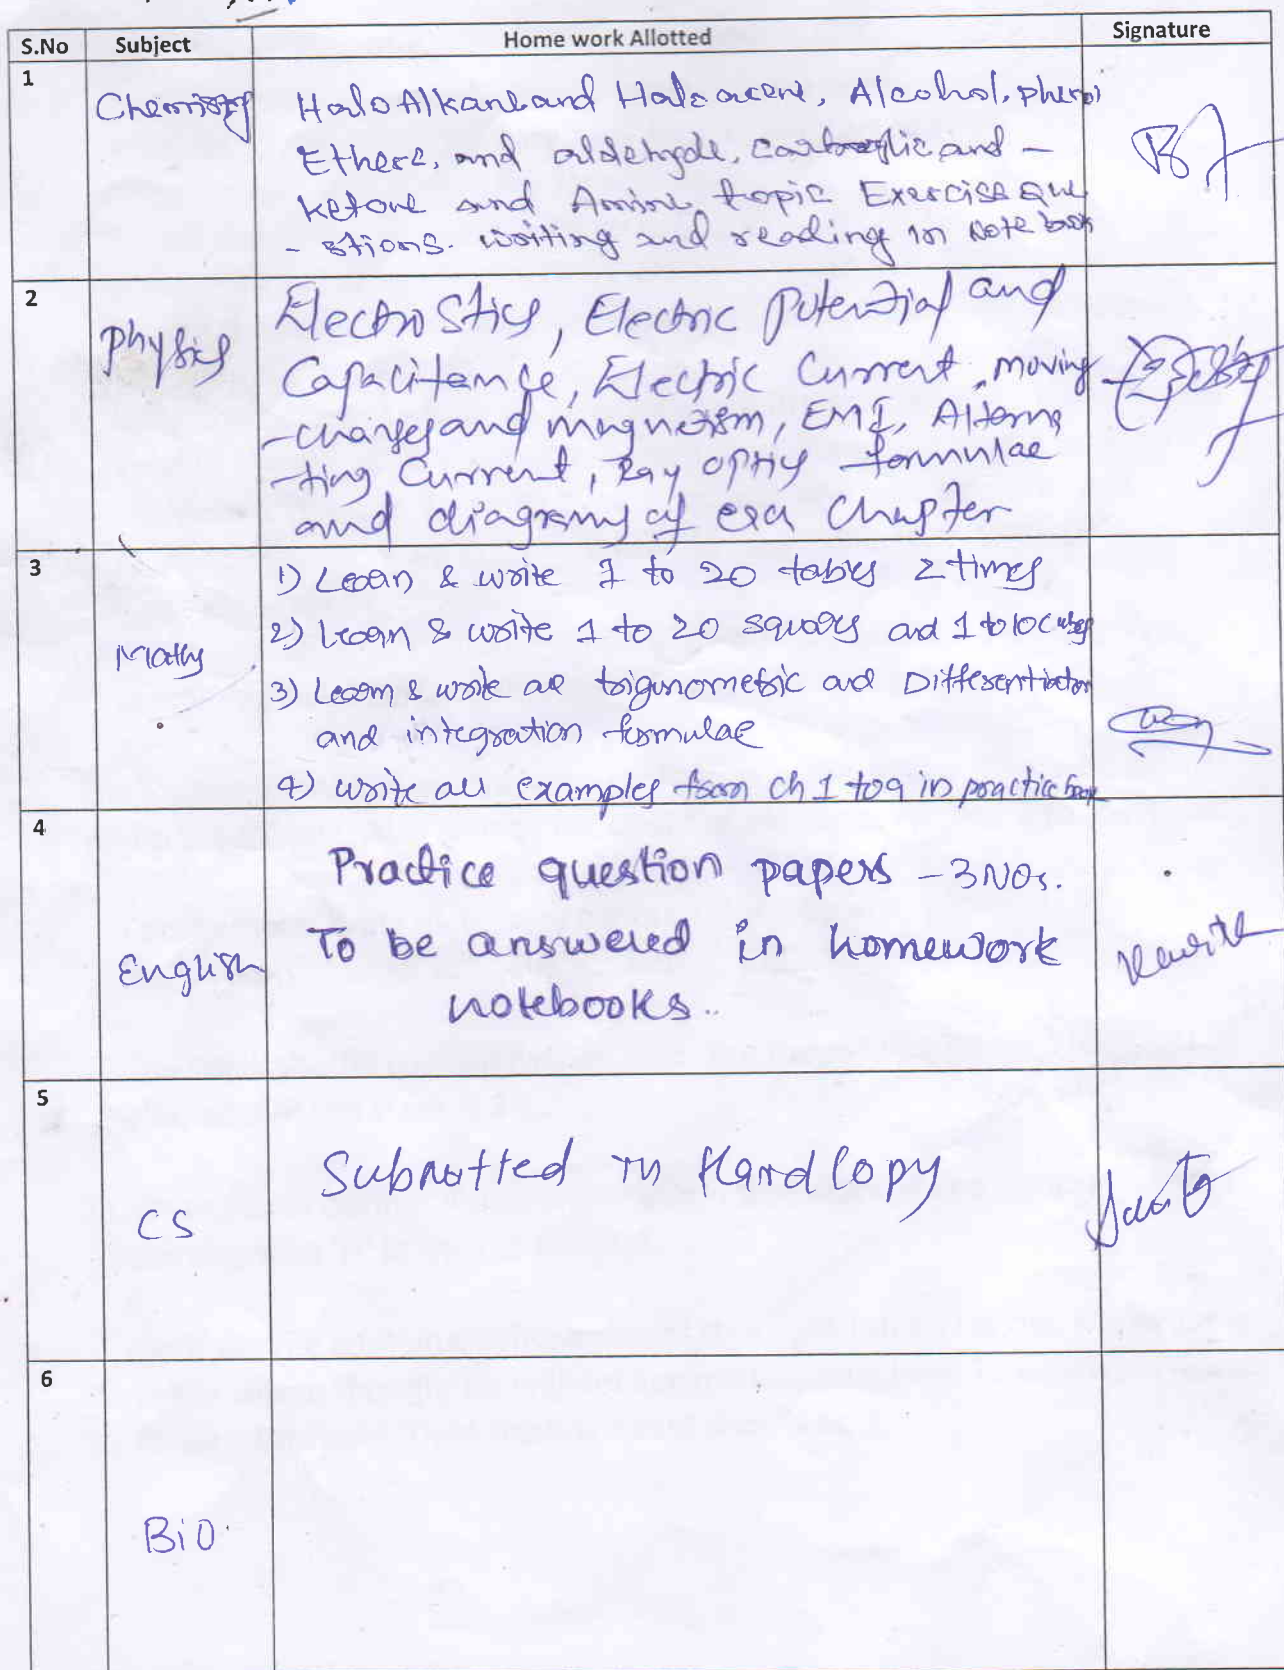 S.No Subject Home work Allotted Signature
1
Chemistry HaloAlkane and Haloarene, Alcohol, phenol
Ethere, and aldehyde, carboxylic and -
Ketone and Amine topic Exercise que
- stions. writing and reading in Note book
2
Physics Electrostics, Electric Potential and
Capacitance, Electric Current, moving
-charges and magnetism, EMI, Alterna
-ting Current, Ray optics formulae
and diagrams of each Chapter
3
Maths
1) Learn & write 1 to 20 tables 2 times
2) Learn & write 1 to 20 squares and 1 to 10 cubes
3) Learn & write all trigonometric and Differentiation
and integration formulae
4) write all examples from ch 1 to 9 in practice book
4
English
Practice question papers - 3 NOs.
To be answered in homework
notebooks..
5
CS
Submitted in Hard Copy
6
Bio